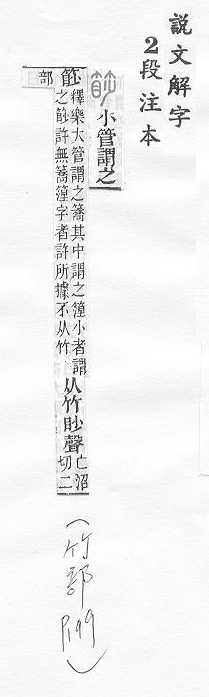 說文解字
2段注本
篎小管謂之
篎
釋樂大管謂之簥其中謂之篞小者謂
之篎許無簥篞字者許所據不从竹
从竹眇聲
亡沼
切二
部
(竹部 P.199)